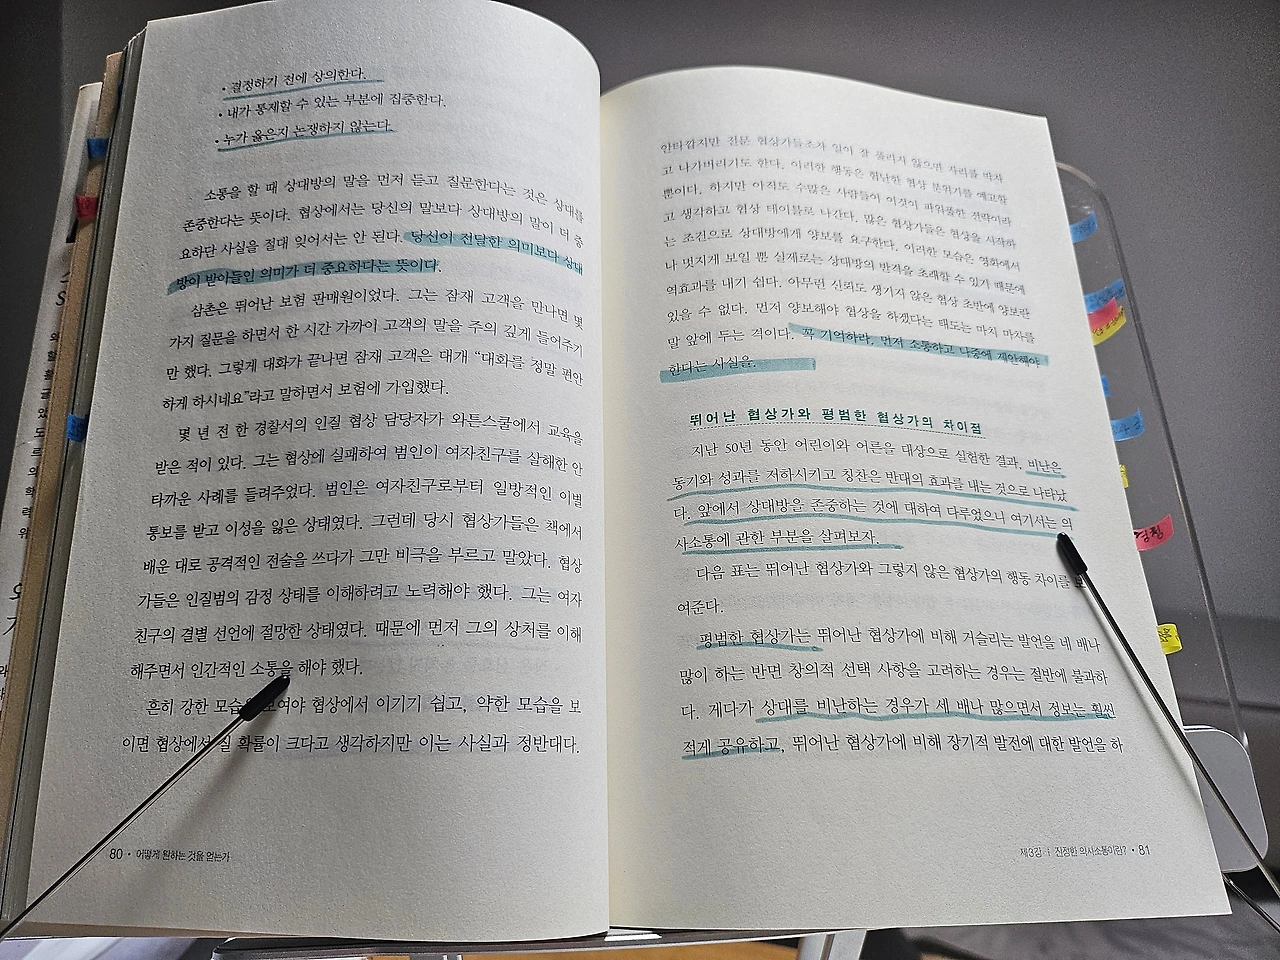 • 결정하기 전에 상의한다.
• 내가 통제할 수 있는 부분에 집중한다.
• 누가 옳은지 논쟁하지 않는다.
소통을 할 때 상대방의 말을 먼저 듣고 질문한다는 것은 상대를
존중한다는 뜻이다. 협상에서는 당신의 말보다 상대방의 말이 더 중
요하단 사실을 절대 잊어서는 안 된다. 당신이 전달한 의미보다 상대
방이 받아들인 의미가 더 중요하다는 뜻이다.
삼촌은 뛰어난 보험 판매원이었다. 그는 잠재 고객을 만나면 몇
가지 질문을 하면서 한 시간 가까이 고객의 말을 주의 깊게 들어주기
만 했다. 그렇게 대화가 끝나면 잠재 고객은 대개 “대화를 정말 편안
하게 하시네요”라고 말하면서 보험에 가입했다.
몇 년 전 한 경찰서의 인질 협상 담당자가 와튼스쿨에서 교육을
받은 적이 있다. 그는 협상에 실패하여 범인이 여자친구를 살해한 안
타까운 사례를 들려주었다. 범인은 여자친구로부터 일방적인 이별
통보를 받고 이성을 잃은 상태였다. 그런데 당시 협상가들은 책에서
배운 대로 공격적인 전술을 쓰다가 그만 비극을 부르고 말았다. 협상
가들은 인질범의 감정 상태를 이해하려고 노력해야 했다. 그는 여자
친구의 결별 선언에 절망한 상태였다. 때문에 먼저 그의 상처를 이해
해주면서 인간적인 소통을 해야 했다.
흔히 강한 모습을 보여야 협상에서 이기기 쉽고, 약한 모습을 보
이면 협상에서 질 확률이 크다고 생각하지만 이는 사실과 정반대다.
80 • 어떻게 원하는 것을 얻는가
안타깝지만 전문 협상가들조차 일이 잘 풀리지 않으면 자리를 박차
고 나가버리기도 한다. 이러한 행동은 험난한 협상 분위기를 예고할
뿐이다. 하지만 아직도 수많은 사람들이 이것이 파워풀한 전략이라
고 생각하고 협상 테이블로 나간다. 많은 협상가들은 협상을 시작하
는 조건으로 상대방에게 양보를 요구한다. 이러한 모습은 영화에서
나 멋지게 보일 뿐 실제로는 상대방의 반격을 초래할 수 있기 때문에
역효과를 내기 쉽다. 아무런 신뢰도 생기지 않은 협상 초반에 양보란
있을 수 없다. 먼저 양보해야 협상을 하겠다는 태도는 마치 마차를
말 앞에 두는 격이다. 꼭 기억하라, 먼저 소통하고 나중에 제안해야
한다는 사실을.
뛰어난 협상가와 평범한 협상가의 차이점
지난 50년 동안 어린이와 어른을 대상으로 실험한 결과, 비난은
동기와 성과를 저하시키고 칭찬은 반대의 효과를 내는 것으로 나타났
다. 앞에서 상대방을 존중하는 것에 대하여 다루었으니 여기서는 의
사소통에 관한 부분을 살펴보자.
다음 표는 뛰어난 협상가와 그렇지 않은 협상가의 행동 차이를 보
여준다.
평범한 협상가는 뛰어난 협상가에 비해 거슬리는 발언을 네 배나
많이 하는 반면 창의적 선택 사항을 고려하는 경우는 절반에 불과하
다. 게다가 상대를 비난하는 경우가 세 배나 많으면서 정보는 훨씬
적게 공유하고, 뛰어난 협상가에 비해 장기적 발전에 대한 발언을 하
제3강 | 진정한 의사소통이란? • 81